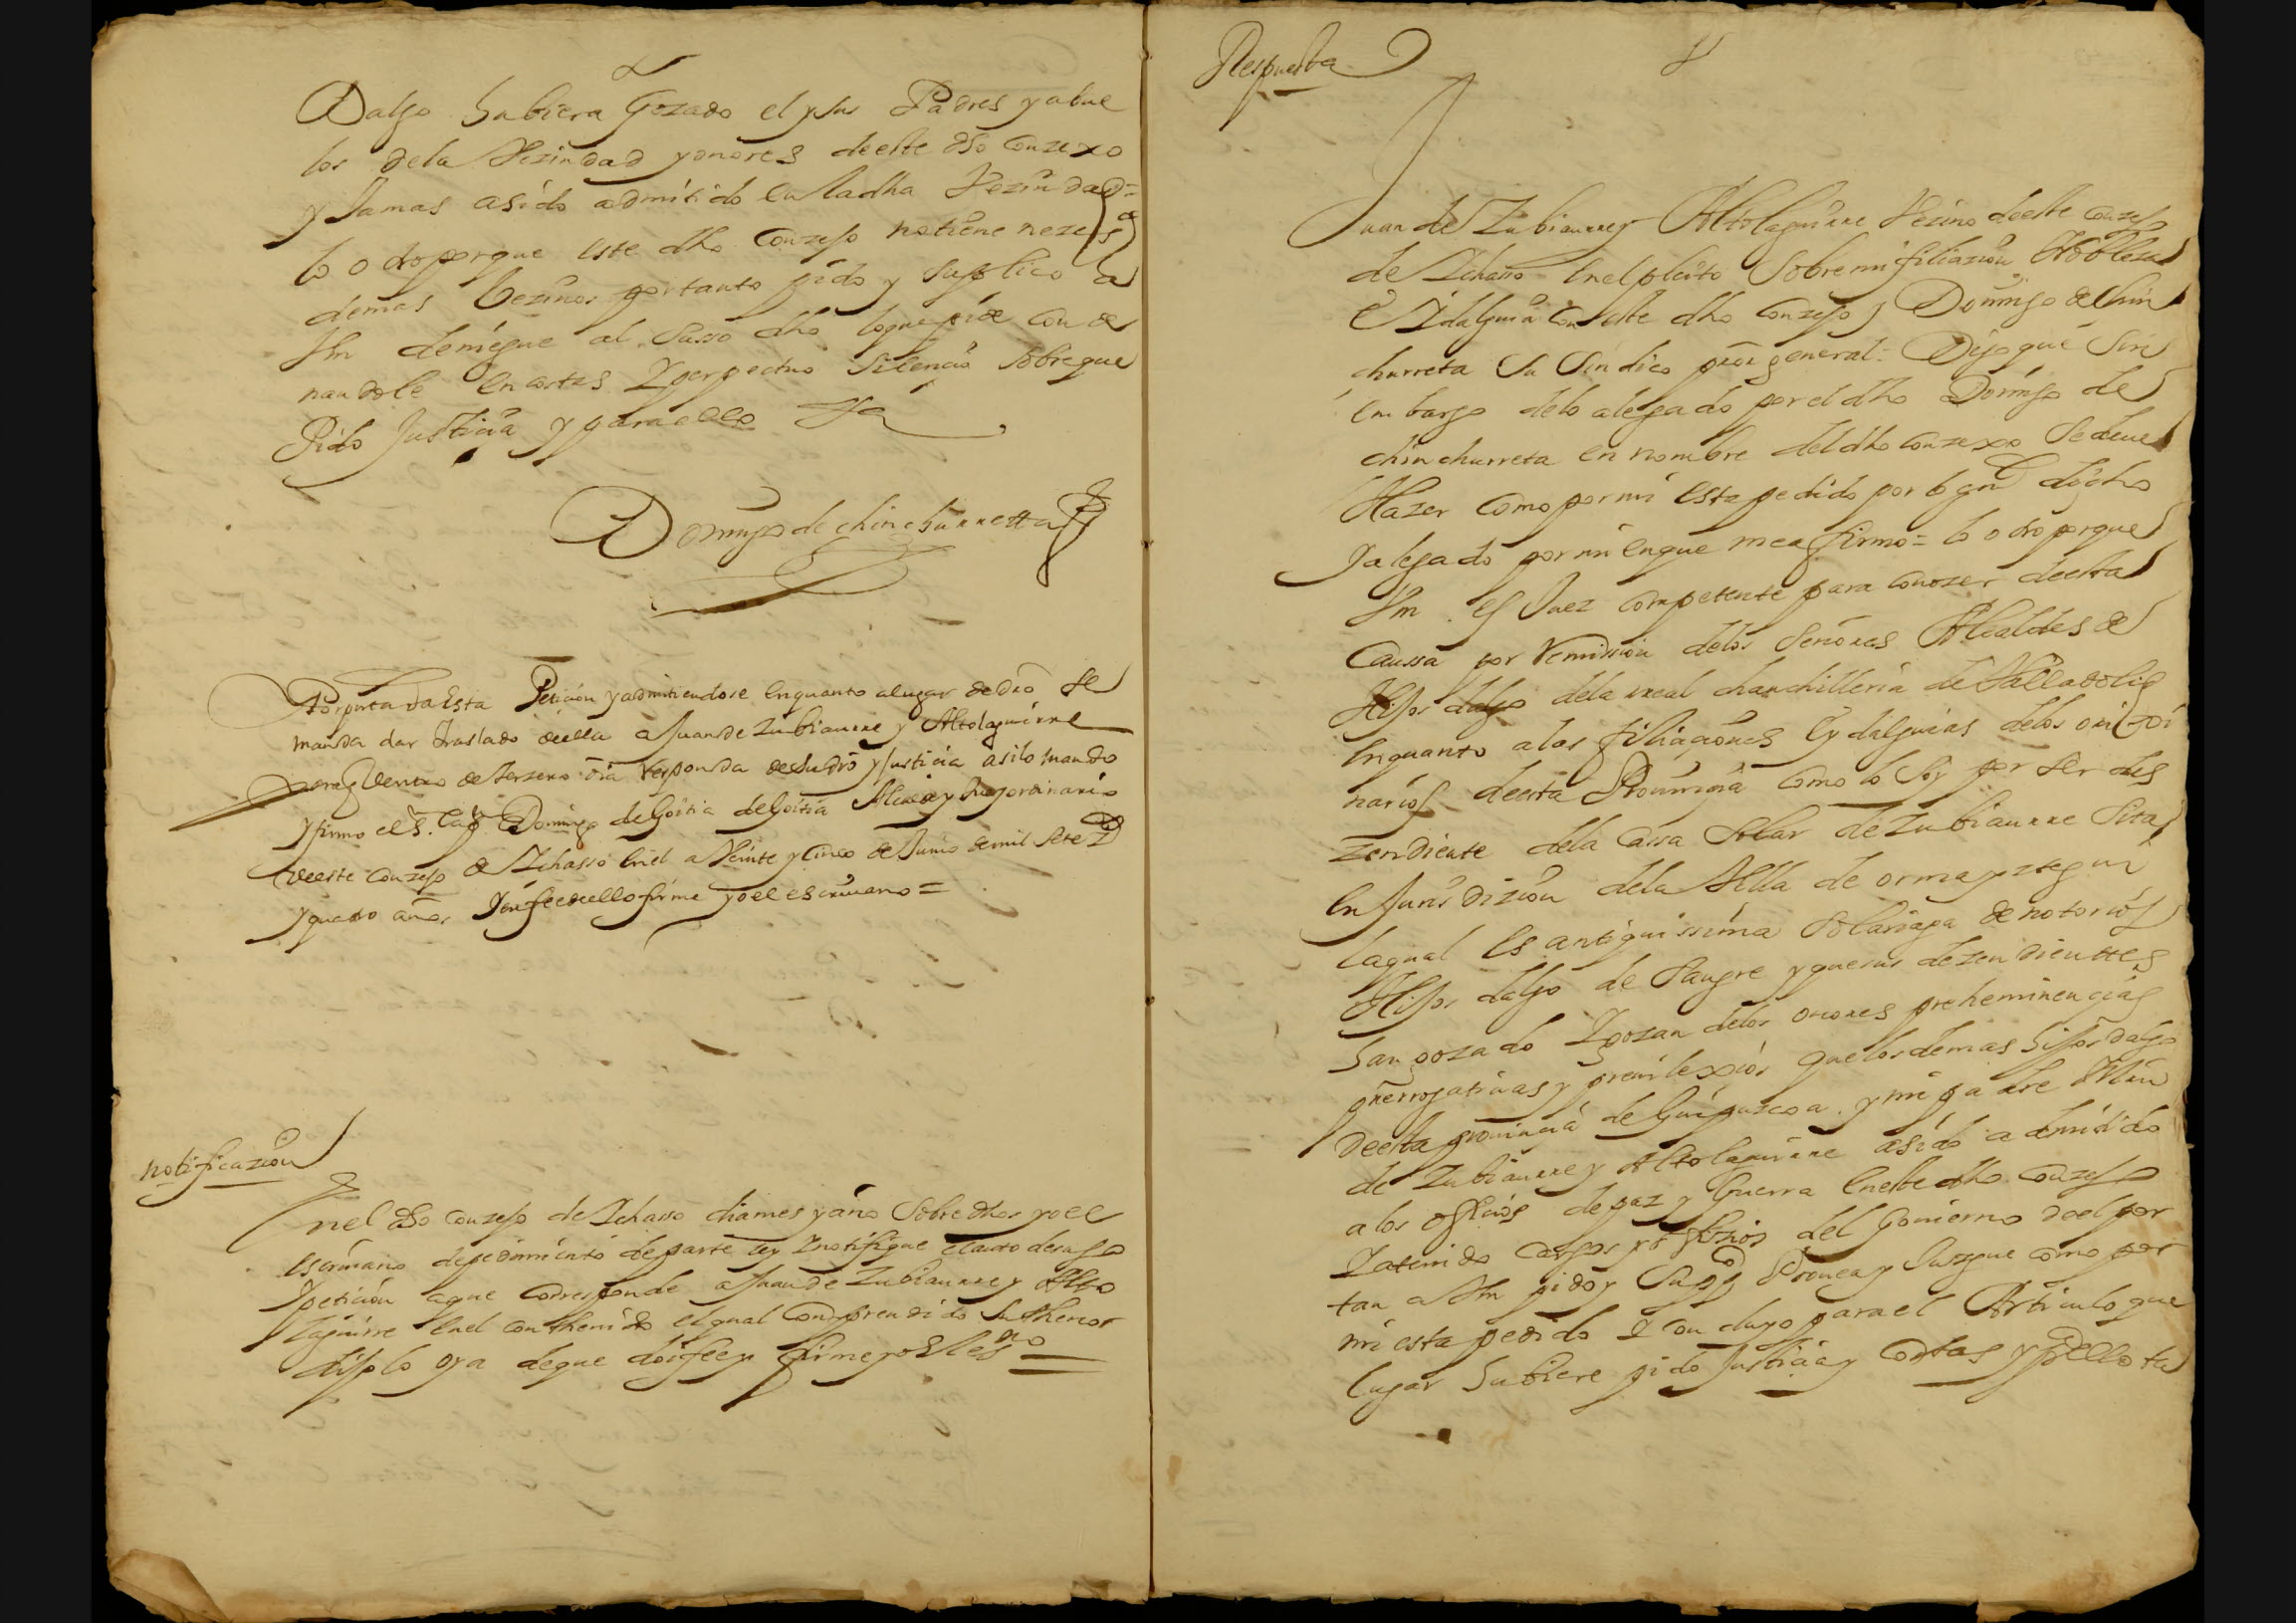 Dalgo hubiera Gozado el y sus Padres y abue
los dela Vezindad y onores deeste dho Conzexo
y Jamas asido admitido en la dha Vezindad=
lo otro porque este dho Conzejo notiene nezes
demas Vezinos portanto pido y suplico a
Vm deniegue al Susso dho loque pide Conde
nandole en costas Y perpectuo silencio sobreque
Pido Justicia y paraello Va
Domingo de chinchurretta
Por pntada Esta Petizion y admitiendose enquanto alugar dedro se
manda dar traslado deella a Juande Zubiaurre y Altolaguirre
paraq dentro de terzero dia Responda desudro y Justicia asilo mando
y firmo el S. Cap Domingo deGoitia deGoitia Alcalde y Juez ordinario
deeste Conzejo de Ichasso Enel a Veinte y Cinco de Junio demil sete
y quatro años Yenfeedeello firme yo el escriuano=
notificazion
Enel dho Conzejo de Ichasso dia mes y año Sobre dhos yo el
escriuano depedimiento departe ley Y notifique elauto desuso
Y petizion aque Corresponde a Juande Zubiaurre y Alto
laguirre enel Conthenido elqual Comprendido Suthenor
dijo lo oya deque doi fee y firme yo el es.no =
Respuesta
Juan de Zubiaurre y Altolaguirre Vezino deeste Conzejo
de Ichasso enelpleito Sobre mi filiazion Nobleza
e Ydalguia Con este dho Conzejo y Domingo de Chin
churreta Su Sindico pror general: Digo que Sin
embargo delo alegado por el dho Domingo de
chinchurreta en nombre deldho Conzexo Sedeue
Hazer Como por mi esta pedido por lo gnl dicho
Y alegado por mi enque me afirmo= lo otro porque
Vm es Juez Competente para Conozer deesta
Caussa por Remission delos Señores Alcaldes de
Hijos dalgo dela real chanchilleria de Valladolid
enquanto alas filiaciones Eydalguias delos ori
narios deesta Prouincia Como lo Soy por ser des
zendiente dela Cassa Solar de Zubiaurre Sita
en Jurisdizion dela Villa de ormayztegui
laqual es antiquissima Solariega de notorios
Hijos dalgo de Sangre y que sus dezendienttes
han gozado Y gozan delos onores preheminencias
prerrogatiuas y preuilexios que los demas hijos dalgo
Deesta prouincia de Guipuzcoa. y mi padre Min
de Zubiaurre y Altolaguirre asido admitido
alos offizios de paz y Guerra eneste dho Conzejo
Y atenido Cargos y offizios del Gouierno del por
tan a Vm pido y Supp.co Prouea y Juzgue como por
mi esta pedido Y Concluyo parael Articulo que
lugar hubiere pido Justicia y Costas y p.a ello va